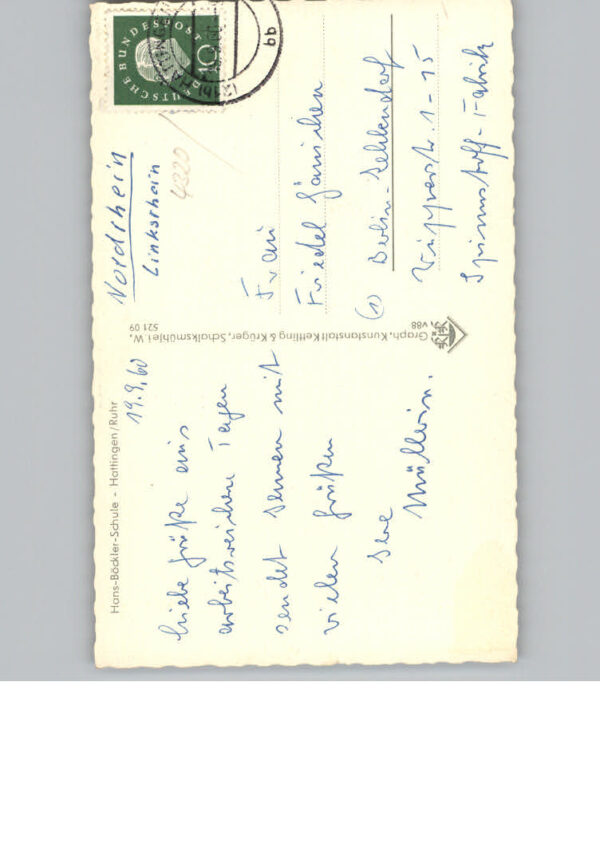 Hans-Böckler-Schule - Hattingen/Ruhr
19.9.60
Liebe Grüße eins
arbeitsreichen Tagen
sendet Ihnen mit
vielen Grüßen
Ihre
Müllerin.
Graph. Kunstanstalt Kettling & Krüger, Schalksmühle i. W.
V88
521 09
DEUTSCHE BUNDESPOST
10
bb
Nordrhein
Linksrhein
4320
Frau
Friedel Jänichen
(1) Berlin-Zehlendorf
Wupperstr. 1-15
Spinnstoff-Fabrik